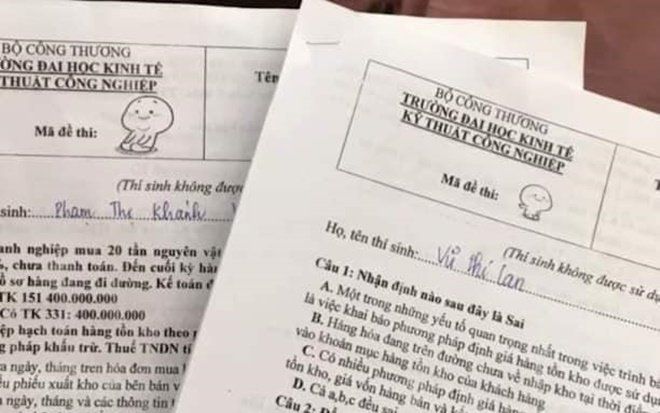 BỘ CÔNG THƯƠNG
ƯỜNG ĐẠI HỌC KINH TẾ
THUẬT CÔNG NGHIỆP
Mã đề thi:
Tên
(Thí sinh không được
sinh: Phạm Thị Khánh
anh nghiệp mua 20 tấn nguyên vật
%, chưa thanh toán. Đến cuối kỳ hàn
ồ sơ hàng đang đi đường. Kế toán
TK 151 400.000.000
Có TK 331: 400.000.000
iệp hạch toán hàng tồn kho theo
g pháp khấu trừ. Thuế TNDN tí
ngày, tháng trên hóa đơn mua
ếu phiếu xuất kho của bên bán v
ngày, tháng và các thông tin
BỘ CÔNG THƯƠNG
TRƯỜNG ĐẠI HỌC KINH TẾ
KỸ THUẬT CÔNG NGHIỆP
Mã đề thi:
T
(Thí sinh không được sử dụ
Họ, tên thí sinh: Vũ Thị Lan
Câu 1: Nhận định nào sau đây là Sai
A. Một trong những yếu tố quan trọng nhất trong việc trình bà
là việc khai báo phương pháp định giá hàng tồn kho được sử dụn
B. Hàng hóa đang trên đường chưa về nhập kho tại thời điể
vào khoản mục hàng tồn kho của khách hàng
C. Có nhiều phương pháp định giá hàn
tồn kho, giá vốn hàng bán và
D. Cả a,b,c đều sai
Câu 2: